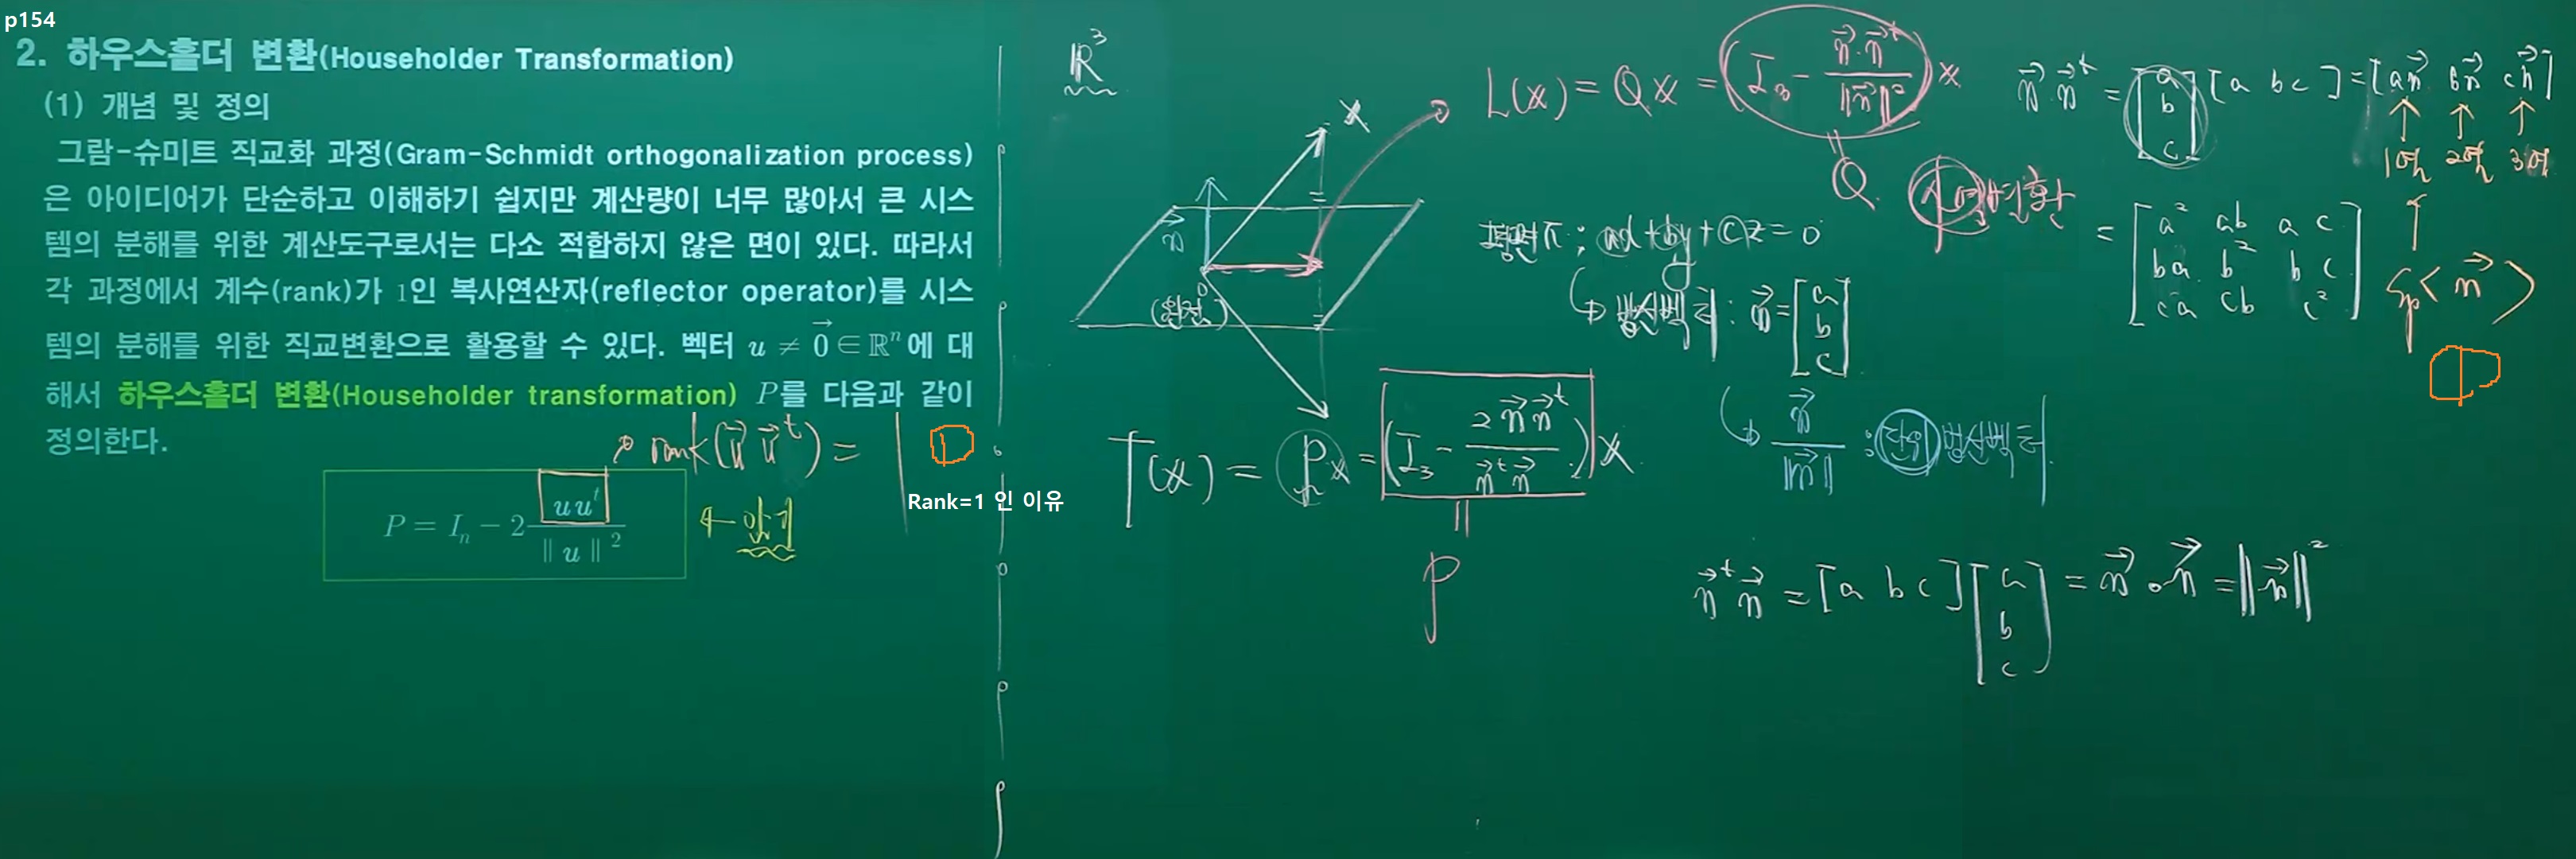 p154
2. 하우스홀더 변환(Householder Transformation)
(1) 개념 및 정의
그람-슈미트 직교화 과정(Gram-Schmidt orthogonalization process)
은 아이디어가 단순하고 이해하기 쉽지만 계산량이 너무 많아서 큰 시스
템의 분해를 위한 계산도구로서는 다소 적합하지 않은 면이 있다. 따라서
각 과정에서 계수(rank)가 1인 복사연산자(reflector operator)를 시스
템의 분해를 위한 직교변환으로 활용할 수 있다. 벡터 u ≠ \vec{0} ∈ ℝⁿ에 대
해서 하우스홀더 변환(Householder transformation) P를 다음과 같이
정의한다.
rank(\vec{u} \vec{u}^t) = 1 ①
P = I_n − 2 \frac{u u^t}{‖u‖²} ← 암기
Rank=1 인 이유
ℝ³
x
\vec{n}
0
(원점)
L(x) = Qx = (I₃ − \frac{\vec{n}·\vec{n}^t}{‖\vec{n}‖²}) x
Q
평면π ; ax+by+cz=0
법선벡터 : \vec{n} = [a b c]
\frac{\vec{n}}{‖\vec{n}‖} : 단위법선벡터
T(x) = Px = (I₃ − \frac{2\vec{n}\vec{n}^t}{\vec{n}^t\vec{n}}) x
P
\vec{n}·\vec{n}^t = [a b c] [a b c] = [a\vec{n} b\vec{n} c\vec{n}]
1열 2열 3열
= [a² ab ac
ba b² bc
ca cb c²]
sp<\vec{n}>
①
\vec{n}^t\vec{n} = [a b c] [a b c] = \vec{n}∘\vec{n} = ‖\vec{n}‖²